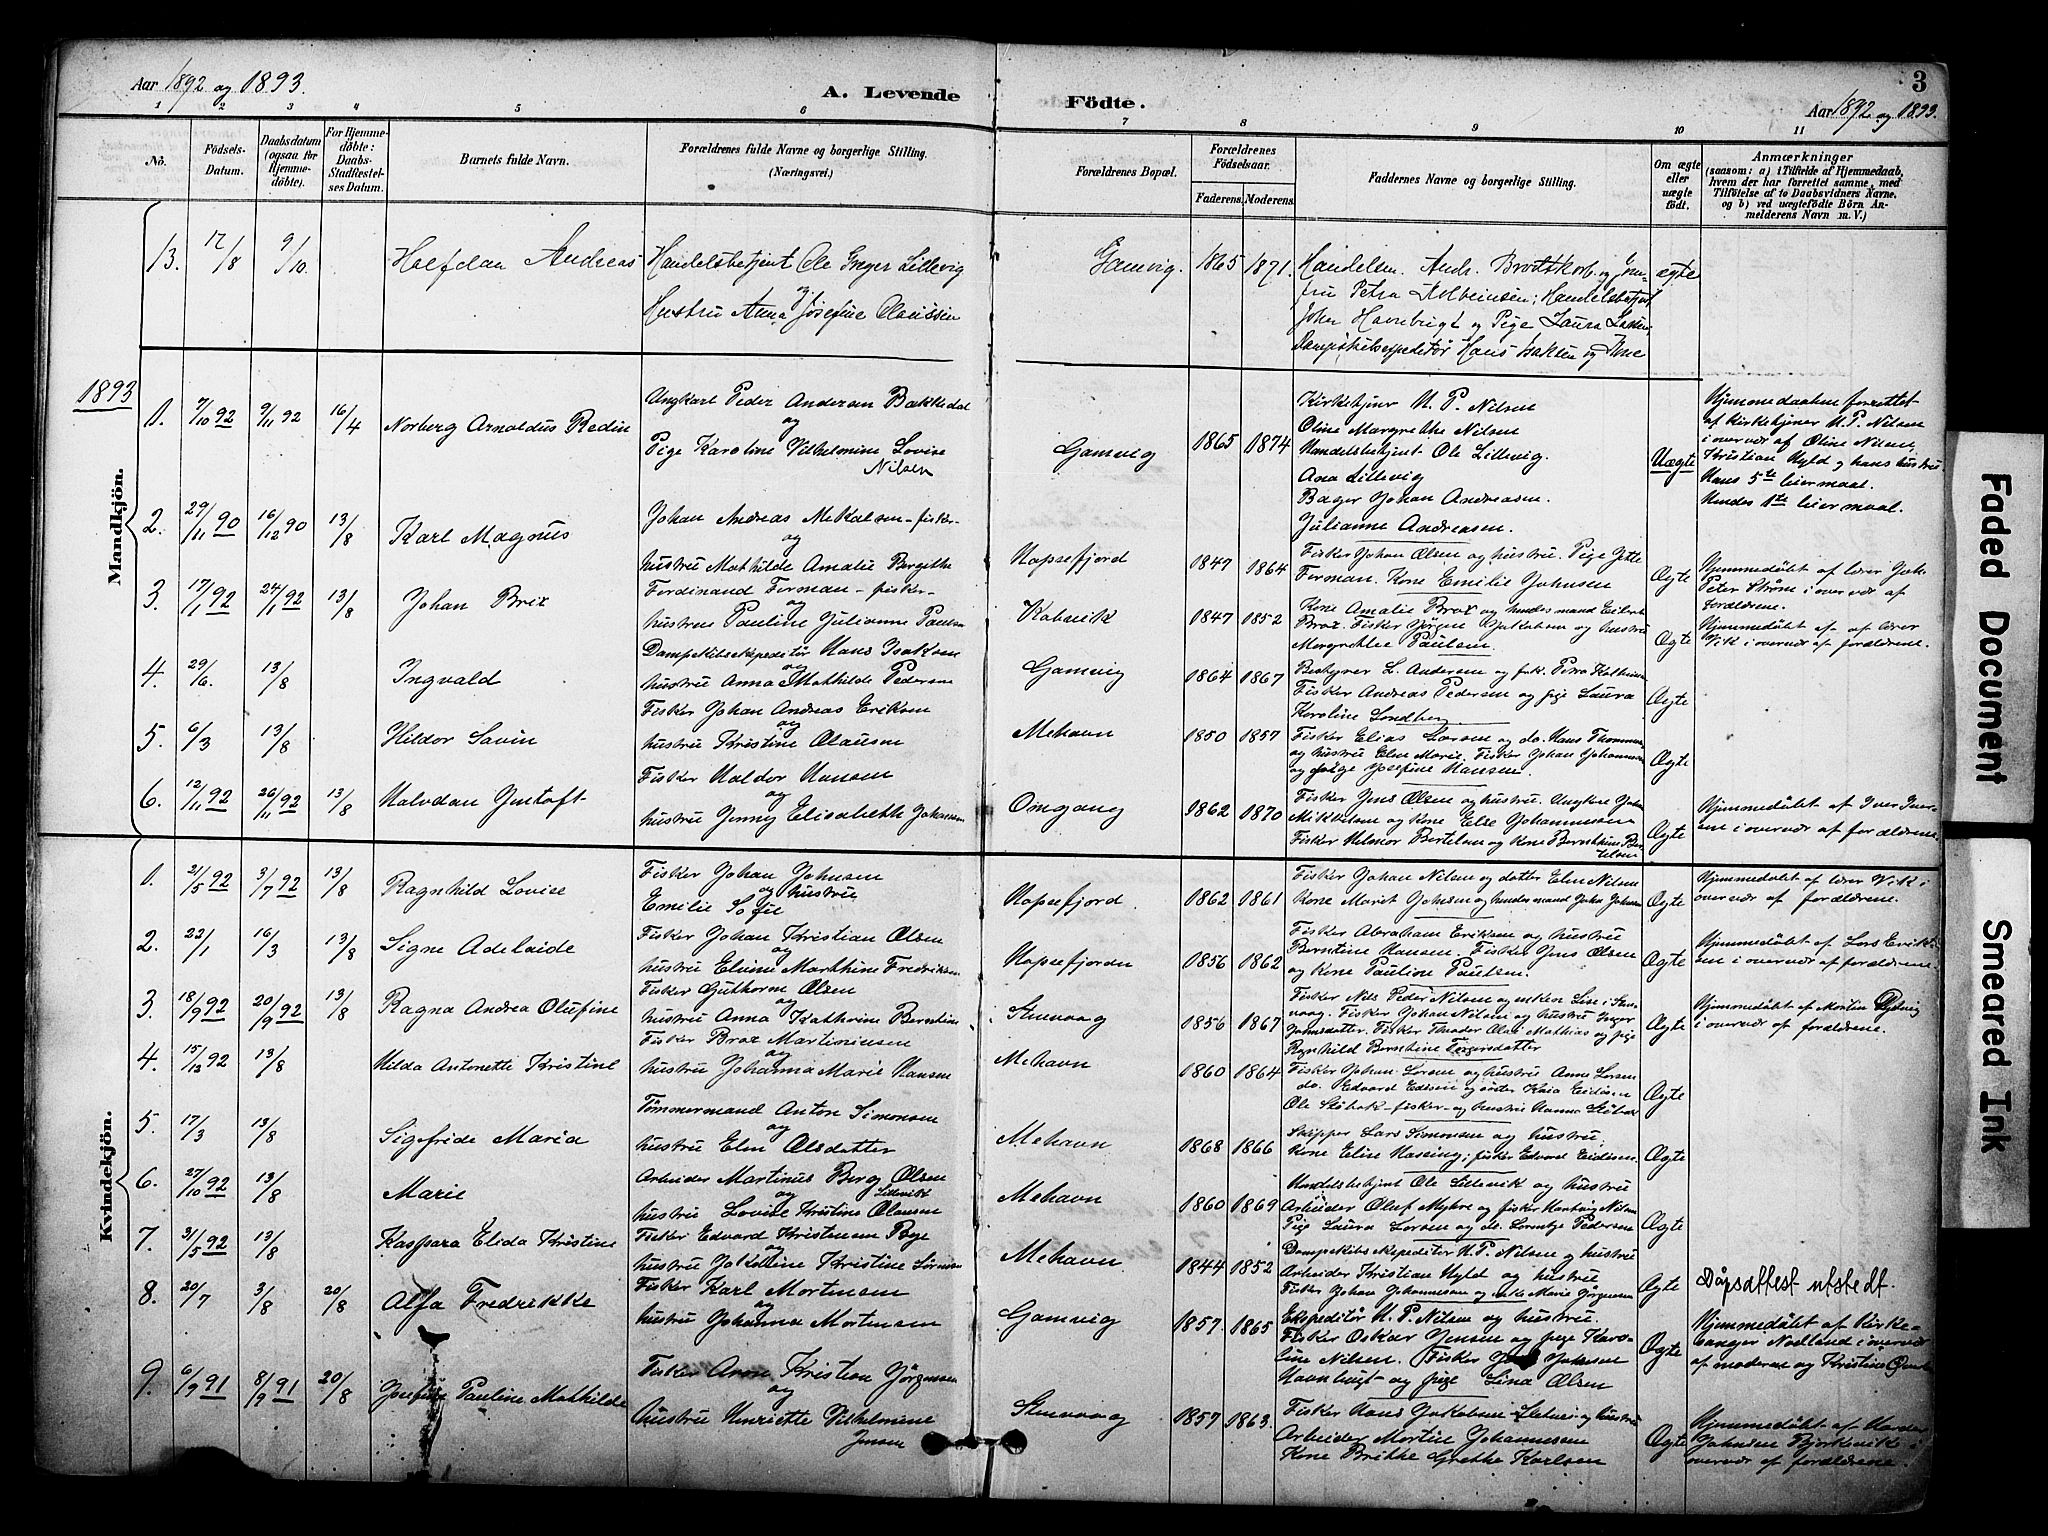 Aar 1892 og 1893.
A. Levende Födte.
3
Aar 1892 og 1893.
1 2 3 4 5 6 7 8 9 10 11
No.
Födsels-Datum.
Daabsdatum (ogsaa for Hjemmedöbte).
For Hjemmedöbte: Daabs-Stadfæstelses Datum.
Barnets fulde Navn.
Forældrenes fulde Navne og borgerlige Stilling. (Næringsvei.)
Forældrenes Bopæl.
Forældrenes Födselsaar.
Faderens. Moderens.
Faddernes Navne og borgerlige Stilling.
Om ægte eller uægte födt.
Anmærkninger
(saasom: a) i Tilfælde af Hjemmedaab, hvem der har forrettet samme, med Tilföielse af to Daabsvidners Navne, og b) ved uægtefödte Börn Anmelderens Navn m. V.)
13. 12/8 9/10. Halfdan Andreas
Handelsbetjent Ole Greger Lillevig
og
Hustru Anna Josefine Claussen
Gamvig. 1865 1871.
Handelsm. Andr. Brodtkorb og Jomfru Petra Kolbeinsen; Handelsbetjent
Joher Havnebrigt og Pige Laura
Dampskibsexpeditör Hans Isaksen og
ægte
1893
Mandkjön.
1. 7/10 92 9/11 92 16/4 Norberg Arnoldus Redin
Ungkarl Peder Andersen Bakkedal
og
Pige Karoline Vilhelmine Lovise
Nilsen
Gamvig 1865 1874
Kirketjener H. P. Nilsen
Oline Margrethe Nilsen
Handelsbetjent Ole Lillevig.
Ana Lillevig
Bager Johan Andreasen.
Julianne Andreasen.
Uægte
Hjemmedaaben forrettet
af Kirketjener H. P. Nilsen
i overvær af Oline Nilsen,
Kristian Hyld og hans hustru
Hans 5te leiermaal.
Hendes 1te leiermaal.
2. 29/11 90 16/12 90 13/8 Karl Magnus
Johan Andreas Mikalsen - fisker -
og
hustru Mathilde Amalie Bergithe
Hopsefjord 1847 1864
Fisker Johan Olsen og hustru. Pige Jette
Forman. Kone Emilie Johnsen
Ægte
Hjemmedöbt af lærer Joh.
Peter Ström i overvær af
forældrene.
3. 17/1 92 24/1 92 13/8 Johan Brix
Ferdinand Forman - fisker -
og
hustru Pauline Julianne Paulsen
Kobevik 1847 1852
Kone Amalie Brox og hendes mand Eilert
Brox. Fisker Jörgen Jakobsen og hustru
Margrethe Paulsen.
Ægte
Hjemmedöbt af lærer
Vik i overvær af forældrene.
4. 29/6. 13/8 Ingvald
Dampskibsexpeditör Hans Isaksen
og
hustru Anna Mathilde Pedersen
Gamvig 1864 1867
Bestyrer L. Andersen og frk. Petra
Fisker Andreas Pedersen og pige Laura
Karoline
Ægte
5. 6/3 13/8 Hildor Savin
Fisker Johan Andreas Eriksen
og
hustru Kristine Olausen
Mehavn 1850 1857
Fisker Elias Larsen og do. Hans
og hustru Elen Marie. Fisker Johan Johannesen
og pige Josefine Hansen.
Ægte
6. 12/11 92 26/11 92 13/8 Halvdan Gustaft
Fisker Haldor Hansen
og
hustru Jenny Elisabeth Johansen
Omgang 1862 1870
Fisker Jens Olsen og hustru.
Mikkelsen og kone Else Johannesen
Fisker Helmer Bertelsen og kone
Ægte
Hjemmedöbt af Iver Iversen i overvær af forældrene.
Kvindekjön.
1. 21/5 92 3/7 92 13/8 Ragnhild Lovise
Fisker Johan Johnsen
og hustru
Emilie Sofie
Hopsefjord 1862 1861
Fisker Johan Nilsen og datter Elen Nilsen
Kone Marit Johnsen og hendes mand John Johnsen
Ægte
Hjemmedöbt af lærer Vik i
overvær af forældrene.
2. 22/1 16/3 13/8 Signe Adelaide
Fisker Johan Kristian Olsen
og
hustru Elvine Marthine Fredriksen
Hopsefjorden 1856 1862
Fisker Abraham Eriksen og hustru
Berntine Hansen. Fisker Jens Olsen
og kone Pauline Paulsen.
Ægte
Hjemmedöbt af Lars Eriksen i overvær af forældrene.
3. 18/9 92 20/9 92 13/8 Ragna Andrea Olufine
Fisker Guthorm Olsen
og
hustru Anna Kathrine Berntine
Stenvaag 1856 1867
Fisker Nils Peder Nilsen og enken Lise i Stenvaag. Fisker Johan Nilsen og hustru Inger
Jonsdatter. Fisker Theodor Olai Mathias og pige
Ragnhild Berntine Torgersdatter
Ægte
Hjemmedöbt af Martin
i overvær af forældrene.
4. 15/12 92 13/8 Hilda Antonette Kristine
Fisker Brox Martiniusen
og
hustru Johanna Marie Hansen
Mehavn 1860 1864
Fisker Johan Larsen og hustru Anne Larsen
do. Edvard Eidesen og söster Kaia Eidesen
Ole Stöbak - fisker - og hustru Hanna Stöbak
Ægte
5. 17/3 13/8 Sigfride Maria
Tömmermand Anton Simonsen
og
hustru Elen Olsdatter
Mehavn 1868 1866
Skipper Lars Simonsen og hustru.
Kone Elise Hassing; fisker Edvard Eidesen.
Ægte
6. 27/10 92 13/8 Marie
Arbeider Martinus Berg Olsen
og Lillevik
hustru Lovise Kristine Olausen
Mehavn 1860 1869
Handelsbetjent Ole Lillevik og hustru
Arbeider Oluf Myhre og fisker Hartvig Nilsen
Pige Laura Larsen og do. Lorentze Pedersen
Ægte
7. 31/5 92 13/8 Kaspara Elida Kristine
Fisker Edvard Kristensen Bye
og
hustru Jakobine Kristine Sörensen
Mehavn 1844 1852
Dampskibsexpeditör H. P. Nilsen og hustru
Arbeider Kristian Hyld og hustru
Fisker Johan Johannesen og enke Marie Jörgensen
Ægte
Dåpsattest utstedt.
8. 20/7 3/8 20/8 Alfa Fredrikke
Fisker Karl Mortensen
og
hustru Johanna Mortensen
Gamvig 1857 1865
Expeditör H. P. Nilsen og hustru.
Fisker Oskar Jensen og pige Karoline Nilsen. Fisker Johnsen
Havnbrigt og pige Lina Olsen
Ægte
Hjemmedöbt af Kirkesanger Nodland i overvær
af moderen og Kristine
9. 6/9 91 8/9 91 20/8 Josefine Pauline Mathilde
Fisker Aron Kristian Jörgensen
og
hustru Henriette Vilhelmine
Jensen
Stenvaag 1857 1863.
Fisker Hans Jakobsen og hustru
Arbeider Martin Johannesen
Kone Brithe Grethe Karlsen
Ægte
Hjemmedöbt af
Johnsen Bjerkevik i
overvær af forældrene.
Faded Document
Smeared Ink